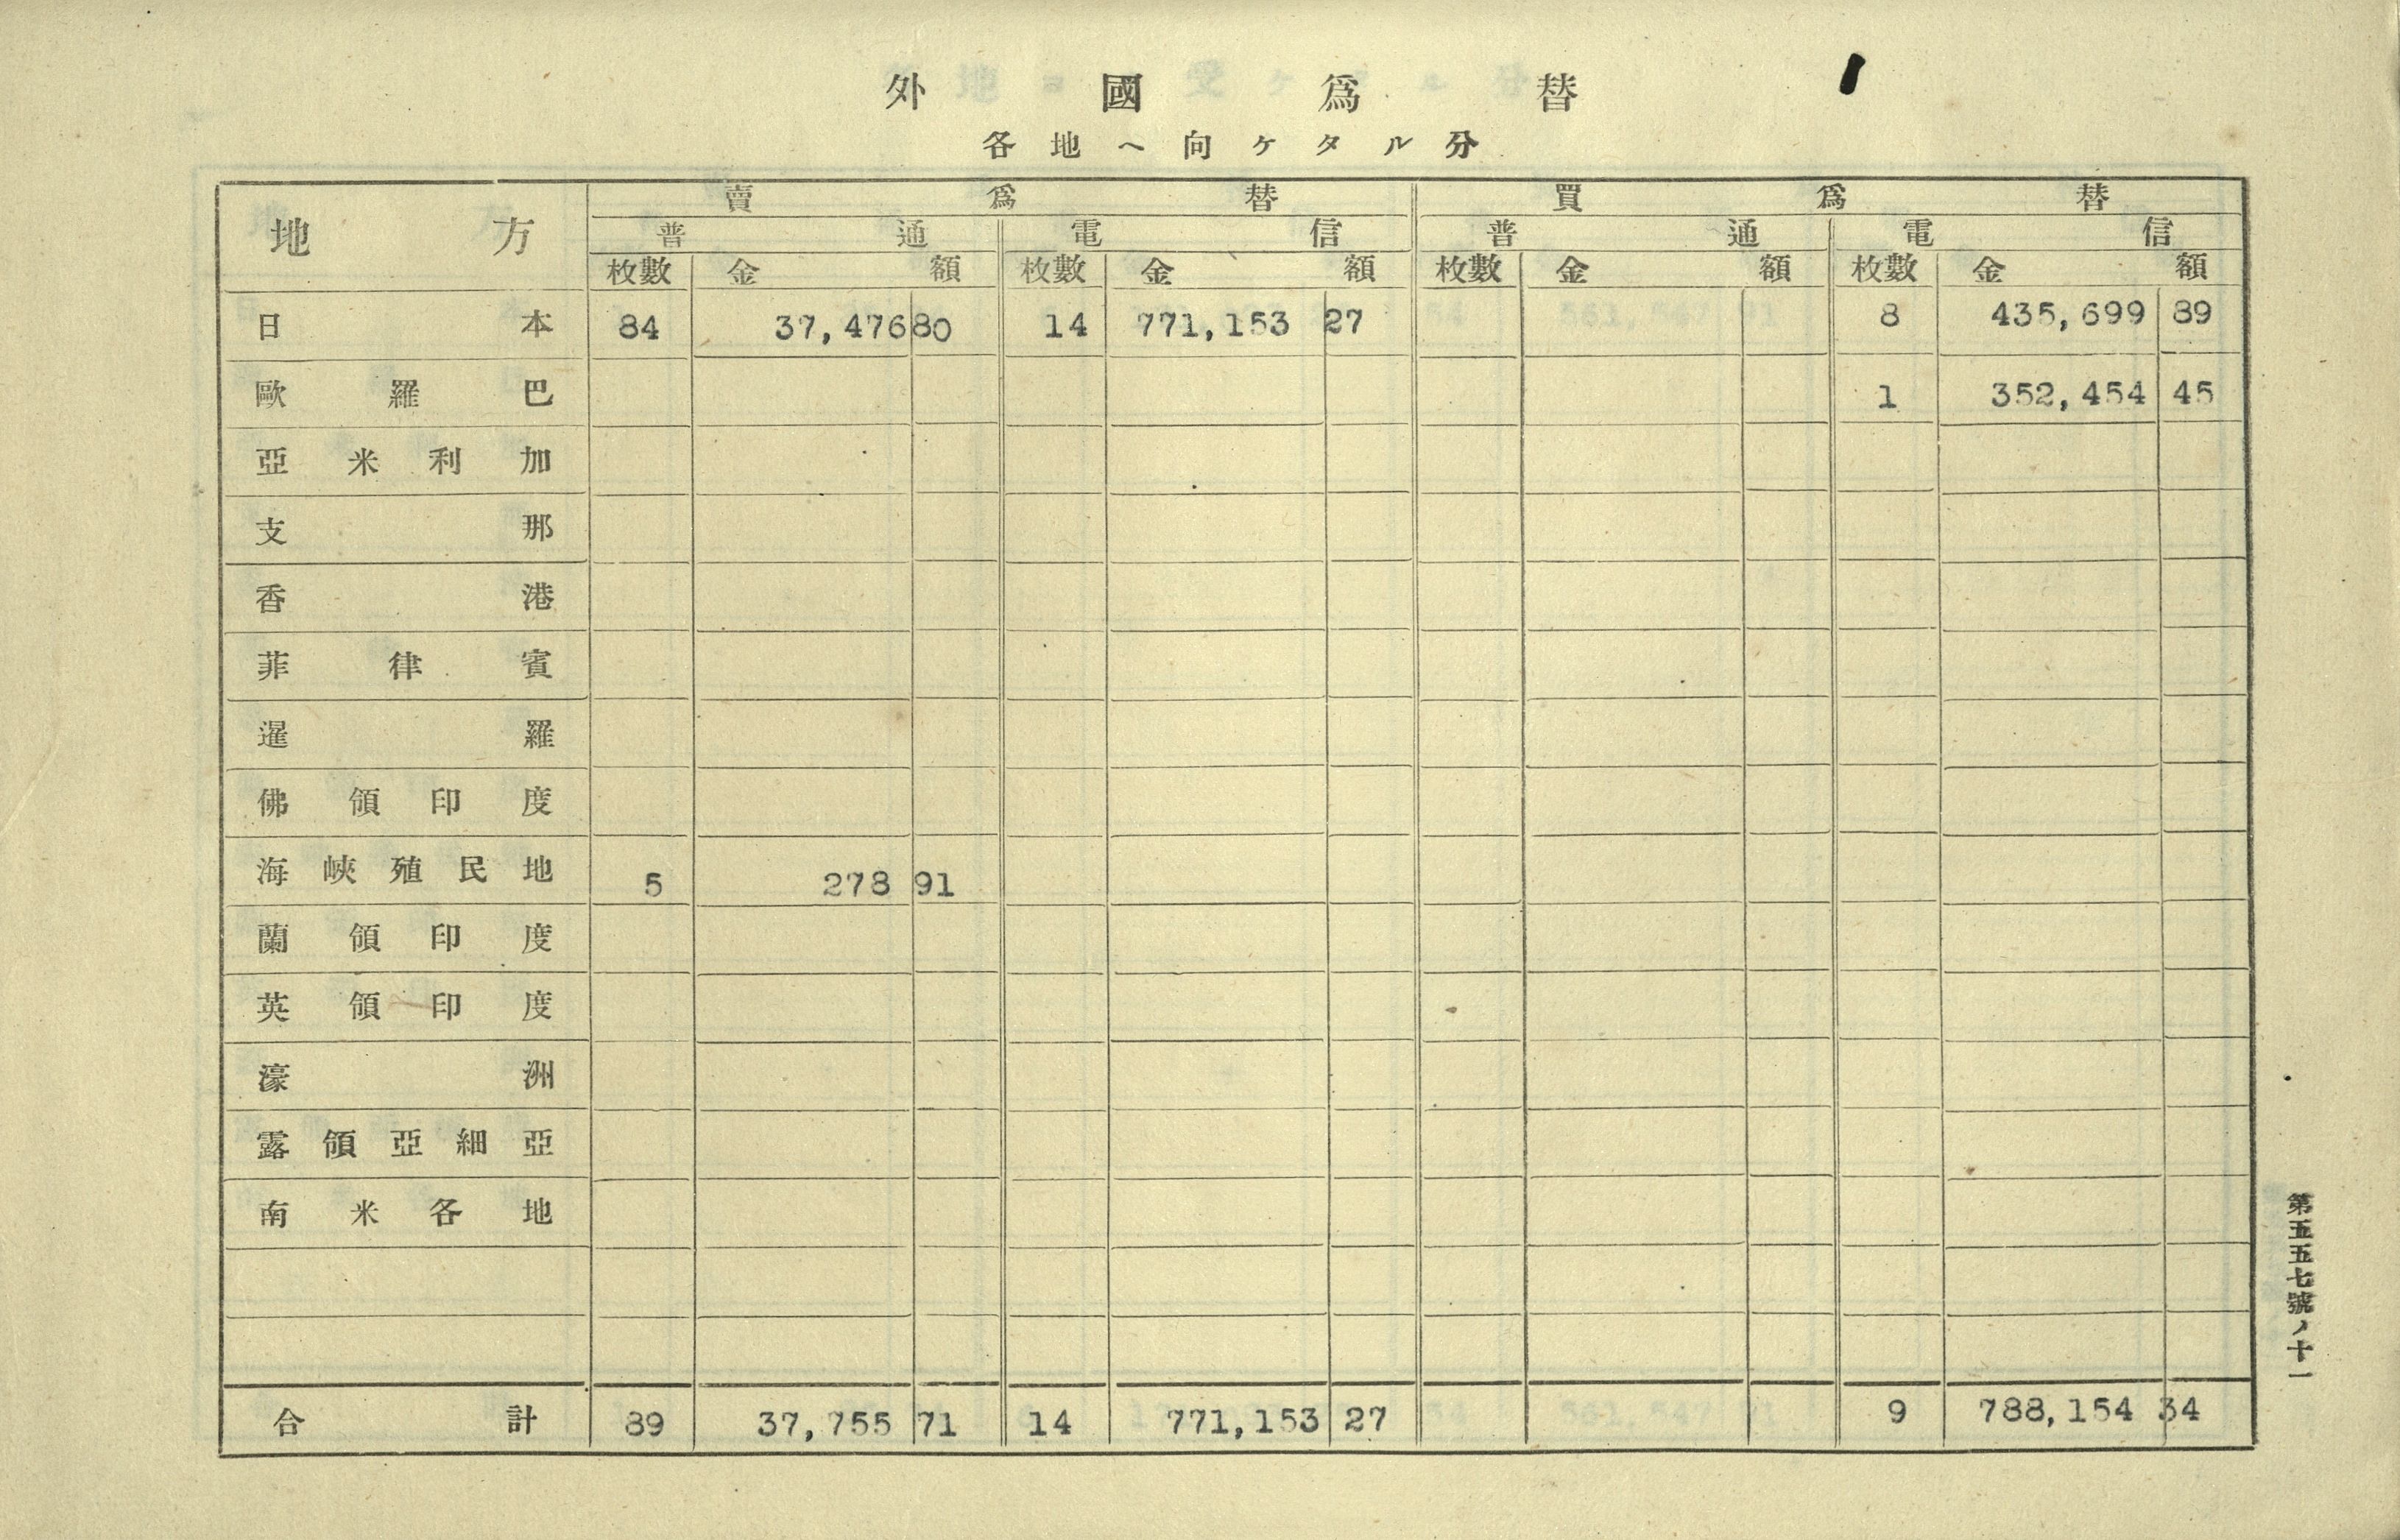 外國爲替
各地ヘ向ケタル分
地方 賣爲替 買爲替
普通 電信 普通 電信
枚數 金額 枚數 金額 枚數 金額 枚數 金額
日本 84 37,476 80 14 771,153 27 8 435,699 89
歐羅巴 1 352,454 45
亞米利加
支那
香港
菲律賓
暹羅
佛領印度
海峽殖民地 5 278 91
蘭領印度
英領印度
濠洲
露領亞細亞
南米各地
合計 89 37,755 71 14 771,153 27 9 788,154 34
第五五七號ノ十一